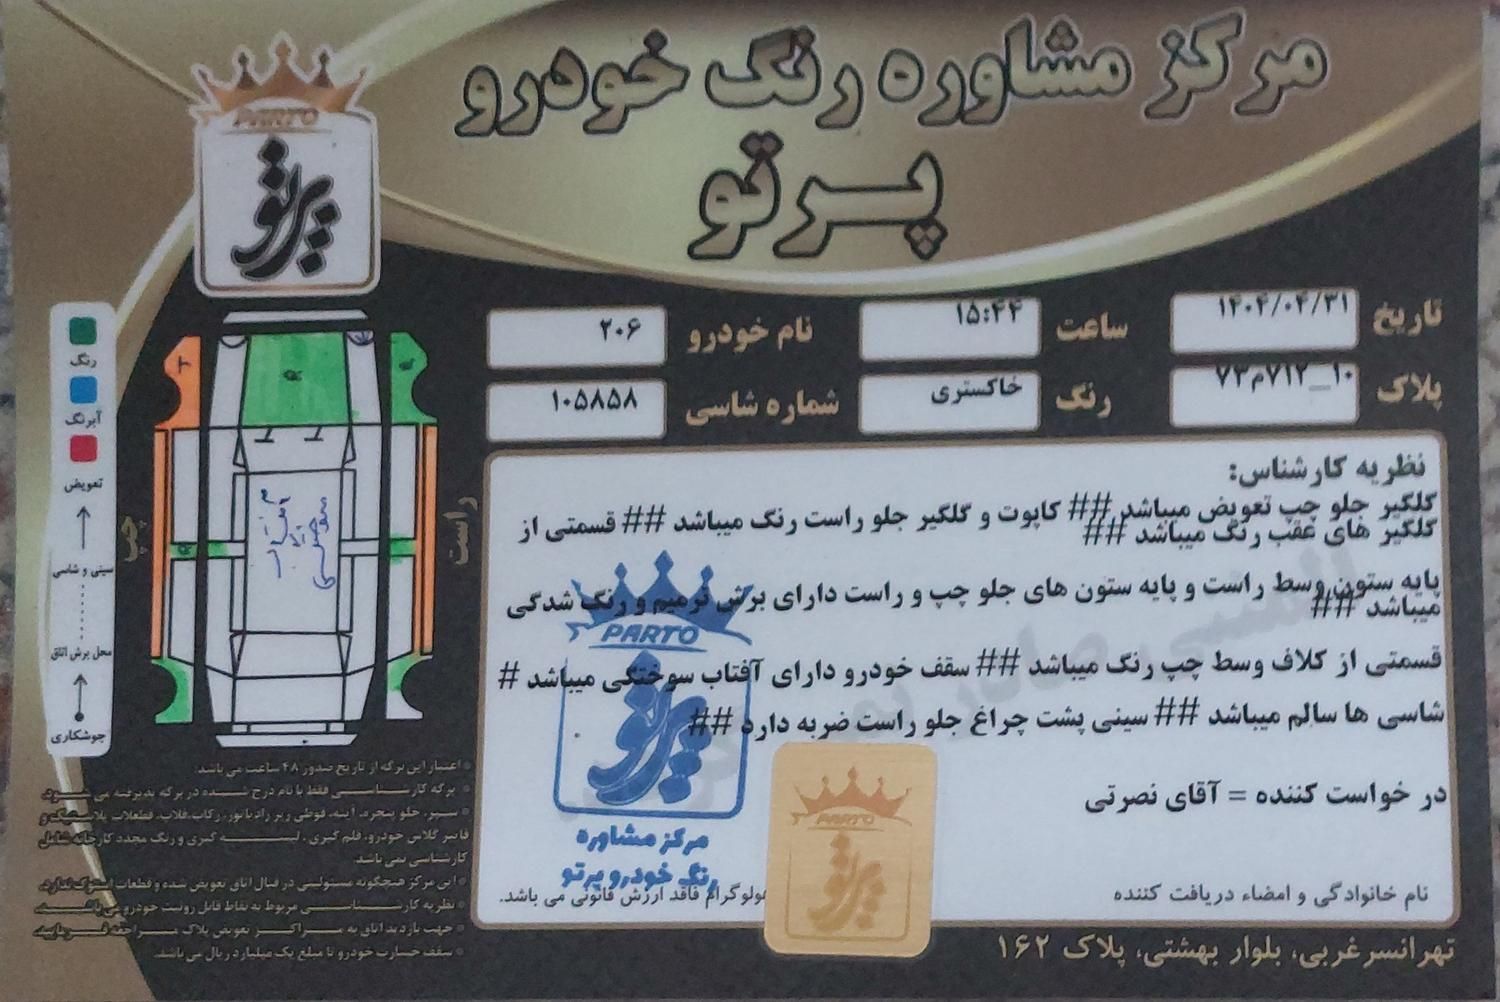 مرکز مشاوره رنگ خودرو
پرتو
PARTO
پرتو
تاریخ ۱۴۰۴/۰۴/۳۱ ساعت ۱۵:۴۴ نام خودرو ۲۰۶
پلاک ۱۰_۷۱۲م۷۳ رنگ خاکستری شماره شاسی ۱۰۵۸۵۸
رنگ
آبرنگ
تعویض
سینی و شاسی
محل برش اتاق
جوشکاری
چپ
راست
نظریه کارشناس:
گلگیر جلو چپ تعویض میباشد ## کاپوت و گلگیر جلو راست رنگ میباشد ## قسمتی از
گلگیر های عقب رنگ میباشد ##
پایه ستون وسط راست و پایه ستون های جلو چپ و راست دارای برش ترمیم و رنگ شدگی
میباشد ##
قسمتی از کلاف وسط چپ رنگ میباشد ## سقف خودرو دارای آفتاب سوختگی میباشد #
شاسی ها سالم میباشد ## سینی پشت چراغ جلو راست ضربه دارد ##
در خواست کننده = آقای نصرتی
PARTO
پرتو
مرکز مشاوره
رنگ خودرو پرتو
PARTO
پرتو
نام خانوادگی و امضاء دریافت کننده
هولوگرام فاقد ارزش قانونی می باشد.
اعتبار این برگه از تاریخ صدور ۴۸ ساعت می باشد.
برگه کارشناسی فقط با نام درج شده در برگه پذیرفته می شود.
سپر، جلو پنجره، آینه، قوطی زیر رادیاتور، رکاب، قالب، قطعات پلاستیک و
فایبر گلاس خودرو، قلم گیری، لیسه گیری و رنگ مجدد کارخانه شامل
کارشناسی نمی باشد.
این مرکز هیچگونه مسئولیتی در قبال اتاق تعویض شده و قطعات استوک ندارد.
نظریه کارشناسی مربوط به نقاط قابل رویت خودرو می باشد.
جهت بازدید اتاق به مراکز تعویض پلاک مراجعه فرمایید.
سقف خسارت خودرو تا مبلغ یک میلیارد ریال می باشد.
تهرانسرغربی، بلوار بهشتی، پلاک ۱۶۲